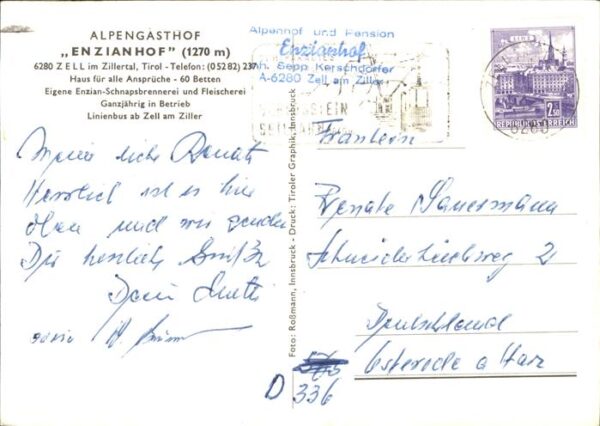 ALPENGASTHOF
„ENZIANHOF” (1270 m)
6280 ZELL im Zillertal, Tirol - Telefon: (05282) 237
Haus für alle Ansprüche - 60 Betten
Eigene Enzian-Schnapsbrennerei und Fleischerei
Ganzjährig in Betrieb
Linienbus ab Zell am Ziller
Alpenhof und Pension
Enzianhof
Inh. Sepp Kerschdorfer
A-6280 Zell am Ziller
LINZ
2.50
REPUBLIK ÖSTERREICH
6280
Meine liebe Renate
Herrlich ist es hier
oben und wir senden
Dir herzliche Grüße
Dein Mutti
sowie
Foto: Roßmann, Innsbruck - Druck: Tiroler Graphik, Innsbruck
Fräulein
Renate Sauermann
Schneiderhiebsweg 2
Deutschland
Osterode a Harz
D 336